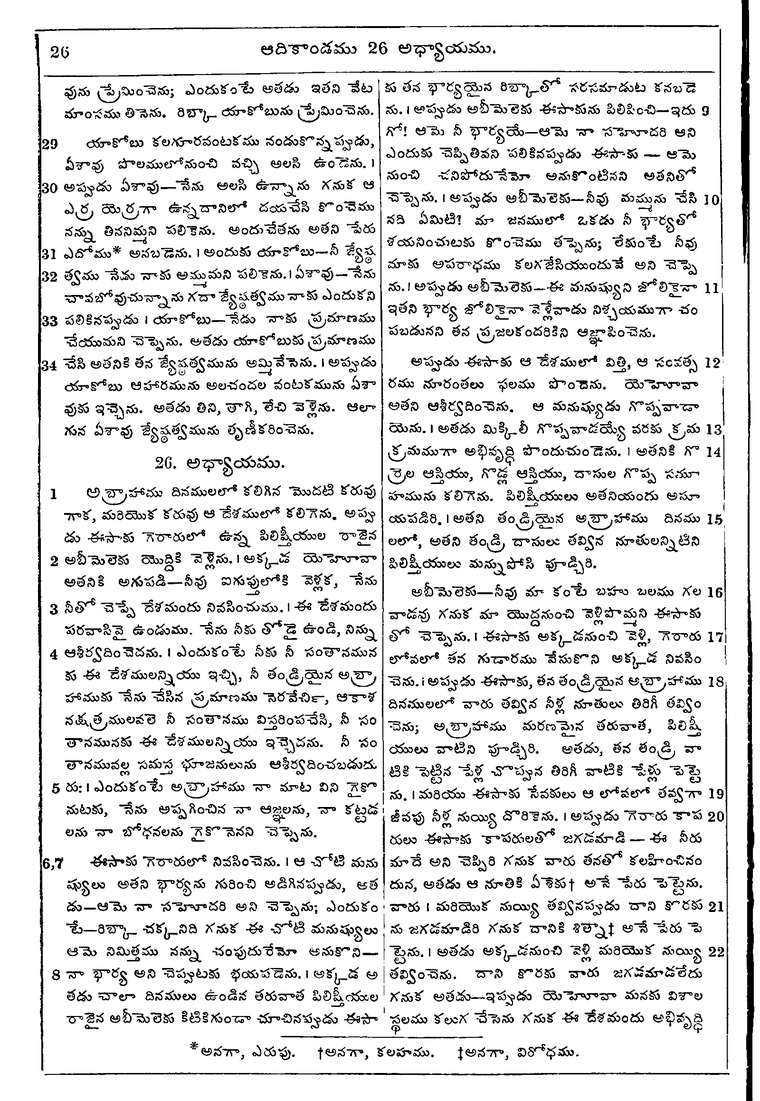 26
ఆదికాండము 26 అధ్యాయము.
వును ప్రేమించెను; ఎందుకంటే అతడు ఇతని వేట
మాంసము తినెను. రిబ్కా యాకోబును ప్రేమించెను.
29 యాకోబు కలగూరవంటకము నండుకొన్నప్పుడు,
ఏశావు పొలములోనుంచి వచ్చి అలసి ఉండెను. ।
30 అప్పుడు ఏశావు—నేను అలసి ఉన్నాను గనుక ఆ
ఎర్ర యెర్రగా ఉన్నదానిలో దయచేసి కొంచెము
నన్ను తిననిమ్మని పలికెను. అందుచేతను అతని పేరు
31 ఎదోము* అనబడెను. । అందుకు యాకోబు—నీ జ్యేష్ఠ
32 త్వము నేడు నాకు అమ్ముమని పలికెను. । ఏశావు—నేను
చావబోవుచున్నాను గదా జ్యేష్ఠత్వము నాకు ఎందుకని
33 పలికినప్పుడు । యాకోబు—నేడు నాకు ప్రమాణము
చేయుమని చెప్పెను. అతడు యాకోబుకు ప్రమాణము
34 చేసి అతనికి తన జ్యేష్ఠత్వమును అమ్మివేసెను. । అప్పుడు
యాకోబు ఆహారమును అలచందల వంటకమును ఏశా
వుకు ఇచ్చెను. అతడు తిని, త్రాగి, లేచి వెళ్లెను. ఆలా
గున ఏశావు జ్యేష్ఠత్వమును తృణీకరించెను.
26. అధ్యాయము.
1 అబ్రాహాము దినములలో కలిగిన మొదటి కరువు
గాక, మరియొక కరువు ఆ దేశములో కలిగెను. అప్పు
డు ఈసాకు గెరారులో ఉన్న పిలిష్తీయుల రాజైన
2 అబీమెలెకు యొద్దికి వెళ్లెను. । అక్కడ యెహోవా
అతనికి అగుపడి—నీవు ఐగుప్తులోకి వెళ్లక, నేను
3 నీతో చెప్పే దేశమందు నివసించుము. । ఈ దేశమందు
పరవాసివై ఉండుము. నేను నీకు తోడై ఉండి, నిన్ను
4 ఆశీర్వదించెదను. । ఎందుకంటే నీకు నీ సంతానమున
కు ఈ దేశములన్నియు ఇచ్చి, నీ తండ్రియైన అబ్రా
హాముకు నేను చేసిన ప్రమాణము నెరవేర్చి, ఆకాశ
నక్షత్రములవలె నీ సంతానము విస్తరింపచేసి, నీ సం
తానమునకు ఈ దేశములన్నియు ఇచ్చెదను. నీ సం
తానమువల్ల సమస్త భూజనులును ఆశీర్వదించబడుదు
5 రు: । ఎందుకంటే అబ్రాహాము నా మాట విని గైకొ
నుటకు, నేను అప్పగించిన నా ఆజ్ఞలను, నా కట్టడ
లను నా బోధనలను గైకొనెనని చెప్పెను.
6,7 ఈసాకు గెరారులో నివసించెను. । ఆ చోటి మను
ష్యులు అతని భార్యను గురించి అడిగినప్పుడు, అత
డు—ఆమె నా సహోదరి అని చెప్పెను; ఎందుకం
టే—రిబ్కా చక్కనిది గనుక ఈ చోటి మనుష్యులు
ఆమె నిమిత్తము నన్ను చంపుదురేమో అనుకొని—
8 నా భార్య అని చెప్పుటకు భయపడెను. । అక్కడ అ
తడు చాలా దినములు ఉండిన తరువాత పిలిష్తీయుల
రాజైన అబీమెలెకు కిటికిగుండా చూచినప్పుడు ఈసా
కు తన భార్యయైన రిబ్కాతో సరసమాడుట కనబడె
ను. । అప్పుడు అబీమెలెకు ఈసాకును పిలిపించి—ఇదు 9
గో! ఆమె నీ భార్యయే—ఆమె నా సహోదరి అని
ఎందుకు చెప్పితివని పలికినప్పుడు ఈసాకు — ఆమె
నుంచి చనిపోదునేమో అనుకొంటినని అతనితో
చెప్పెను. । అప్పుడు అబీమెలెకు—నీవు మమ్మును చేసి 10
నది ఏమిటి? మా జనములో ఒకడు నీ భార్యతో
శయనించుటకు కొంచెము తప్పెను; లేకుంటే నీవు
మాకు అపరాధము కలగజేసియుందువే అని చెప్పె
ను. । అప్పుడు అబీమెలెకు—ఈ మనుష్యుని జోలికైనా 11
ఇతని భార్య జోలికైనా వెళ్లేవాడు నిశ్చయముగా చం
పబడునని తన ప్రజలకందరికిని ఆజ్ఞాపించెను.
అప్పుడు ఈసాకు ఆ దేశములో విత్తి, ఆ సంవత్స 12
రము నూరంతలు ఫలము పొందెను. యెహోవా
అతని ఆశీర్వదించెను. ఆ మనుష్యుడు గొప్పవాడా
యెను. । అతడు మిక్కిలీ గొప్పవాడయ్యే వరకు క్రమ 13
క్రమముగా అభివృద్ధి పొందుచుండెను. । అతనికి గొ 14
ర్రెల ఆస్తియు, గొడ్ల ఆస్తియు, దాసుల గొప్ప సమూ
హమును కలిగెను. పిలిష్తీయులు అతనియందు అసూ
యపడిరి. । అతని తండ్రియైన అబ్రాహాము దినము 15
లలో, అతని తండ్రి దాసులు తవ్విన నూతులన్నిటిని
పిలిష్తీయులు మన్నుపోసి పూడ్చిరి.
అబీమెలెకు—నీవు మా కంటే బహు బలము గల 16
వాడవు గనుక మా యొద్దనుంచి వెళ్లిపొమ్మని ఈసాకు
తో చెప్పెను. । ఈసాకు అక్కడనుంచి వెళ్లి, గెరారు 17
లోవలో తన గుడారము వేసుకొని అక్కడ నివసిం
చెను. । అప్పుడు ఈసాకు, తన తండ్రియైన అబ్రాహాము 18
దినములలో వారు తవ్విన నీళ్ల నూతులు తిరిగీ తవ్వించ
చెను; అబ్రాహాము మరణమైన తరువాత, పిలిష్తీ
యులు వాటిని పూడ్చిరి. అతడు, తన తండ్రి వా
టికి పెట్టిన పేళ్ల చొప్పున తిరిగీ వాటికి పేళ్లు పెట్టె
ను. । మరియు ఈసాకు సేవకులు ఆ లోవలో తవ్వగా 19
జీవపు నీళ్ల నుయ్యి దొరికెను. । అప్పుడు గెరారు కాప 20
రులు ఈసాకు కాపరులతో జగడమాడి — ఈ నీరు
మాదే అని చెప్పిరి గనుక వారు తనతో కలహించినం
దున, అతడు ఆ నూతికి ఏశెకు† అనే పేరు పెట్టెను.
వారు । మరియొక నుయ్యి తవ్వినప్పుడు దాని కొరకు 21
ను జగడమాడిరి గనుక దానికి శిత్నా‡ అనే పేరు పె
ట్టెను. । అతడు అక్కడనుంచి వెళ్లి మరియొక నుయ్యి 22
తవ్వించెను. దాని కొరకు వారు జగడమాడలేదు
గనుక అతడు—ఇప్పుడు యెహోవా మనకు విశాల
స్థలము కలుగ చేసెను గనుక ఈ దేశమందు అభివృద్ధి
*అనగా, ఎరుపు. †అనగా, కలహము. ‡అనగా, విరోధము.